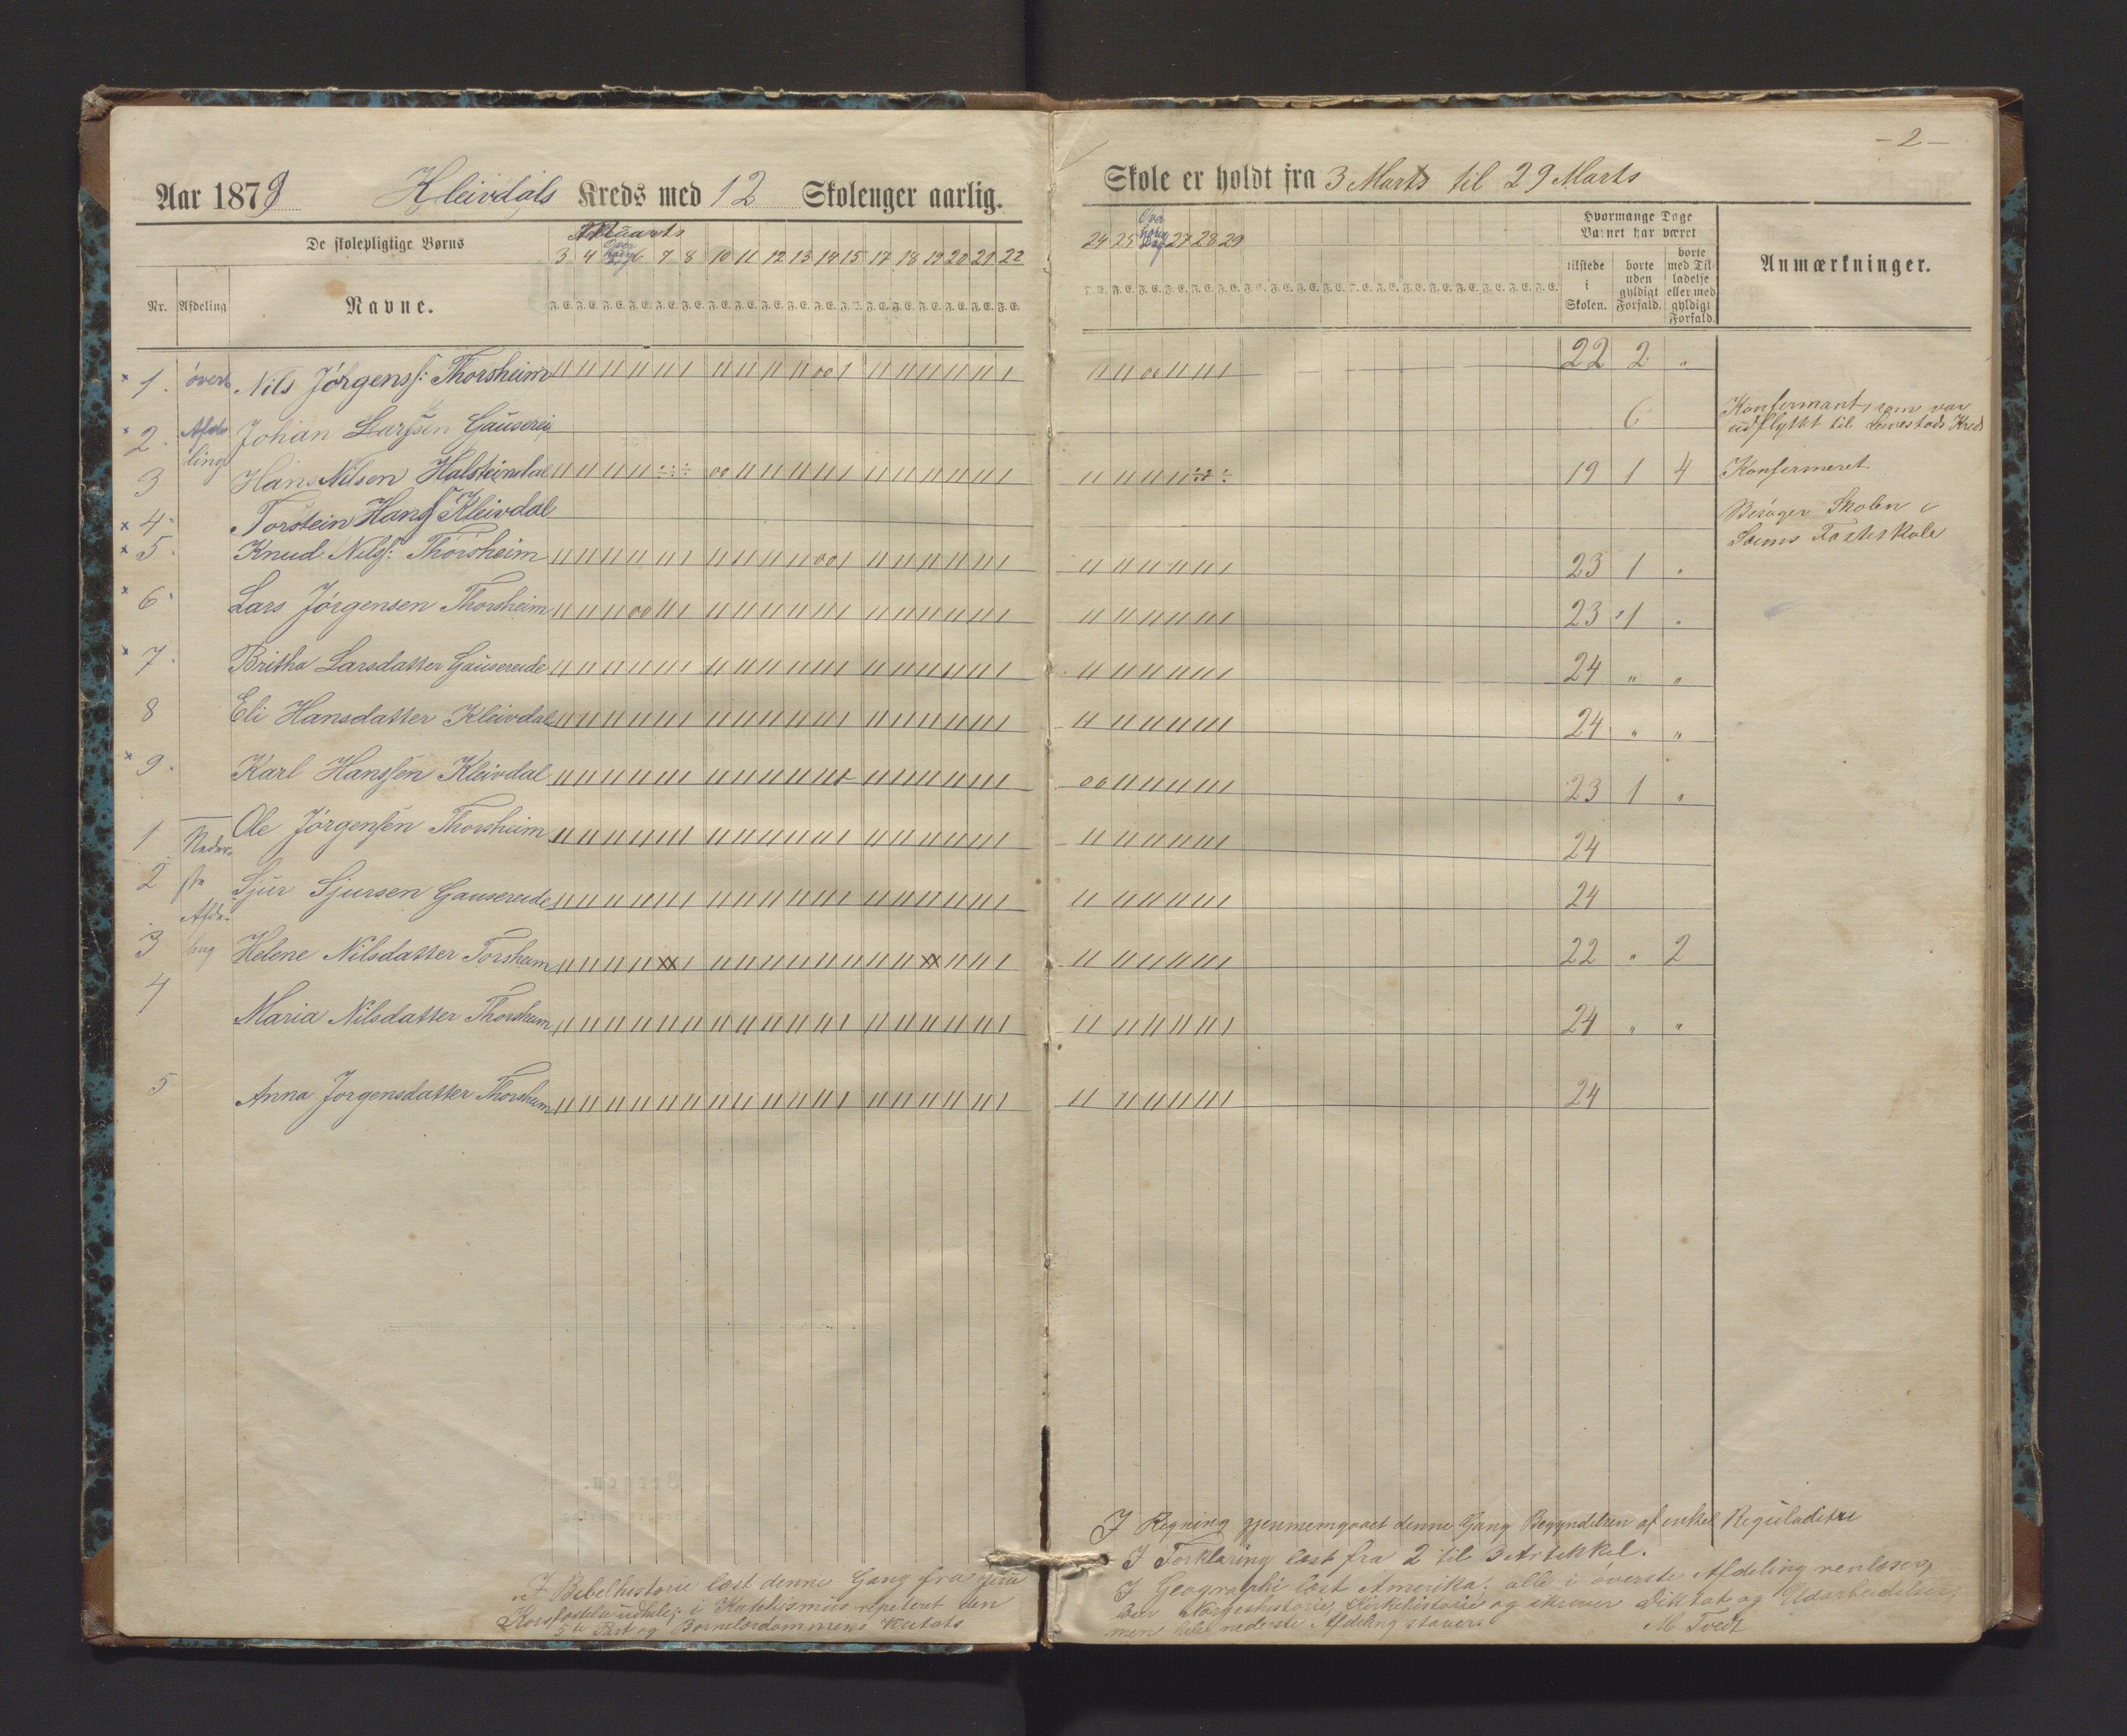 Aar 1879 Kleivdals Kreds med 12 Skolenger aarlig.
De skolepligtige Børns
Marts
3 4 Overhørings Dag 6 7 8 10 11 12 13 14 15 17 18 19 20 21 22
Nr. Afdeling Navne. F. E. F. E. F. E. F. E. F. E. F. E. F. E. F. E. F. E. F. E. F. E. F. E. F. E. F. E. F. E. F. E. F. E. F. E.
× 1. överste Nils Jörgenss: Thorsheim
× 2. Afde Johan Larssen Gausereid
ling
3 Hans Nilsen Halsteindal
× 4. Torstein Hanss Kleivdal
× 5. Knud Nilss: Thorsheim
× 6. Lars Jörgensen Thorsheim
× 7. Britha Larsdatter Gausereide
8 Eli Hansdatter Kleivdal
× 9. Karl Hanssen Kleivdal
1 Neder Ole Jörgensen Thorsheim
2 ste Sjur Sjursen Gausereide
Afde-
3 ling Helene Nilsdatter Torsheim
4
Maria Nilsdatter Thorsheim
5 Anna Jorgensdatter Thorsheim
I Bibelhistorie læst denne Gang fra
i Katekismus repeteret den
5te Part og Barnelærdommens
- 2 -
Skole er holdt fra 3 Marts til 29 Marts
24 25 Overhørings Dag 27 28 29
Hvormange Dage
Barnet har været
tilstede i Skolen.
borte uden gyldigt Forfald.
borte med Tilladelse eller med gyldigt Forfald.
Anmærkninger.
22 2 "
6 Konfirmant, som var
udflyttet til Kreds
19 1 4 Konfirmeret
Besøger Skolen i
Fasteskole
23 1 "
23 1 "
24 " "
24 " "
23 1 "
24
24
22 " 2
24 " "
24
I Regning gjennemgaaet denne Gang Begyndelsen af enkel Reguladetri
I Forklaring læst fra 2 til 3 Artikkel.
I Geographi læst Amerika; alle i øverste Afdeling
Norgeshistorie, Kirkehistorie og skriver Diktat og Udarbeidelser,
men nederste Afdeling staver.
M Tvedt